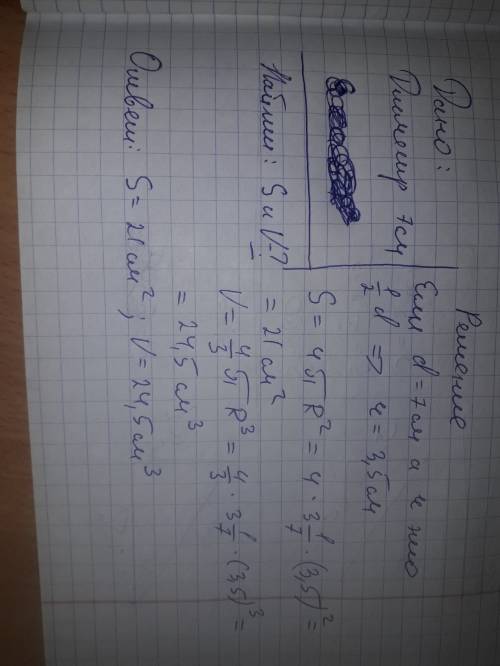 Дано:
Диаметр 7см
Найти: S и V-?
Решение
Если d=7см а r это
1/2 d => r = 3,5см
S = 4πR² = 4 · 3 1/7 · (3,5)² =
= 21см²
V = 4/3 πR³ = 4/3 · 3 1/7 · (3,5)³ =
= 24,5см³
Ответ: S = 21см²; V = 24,5см³